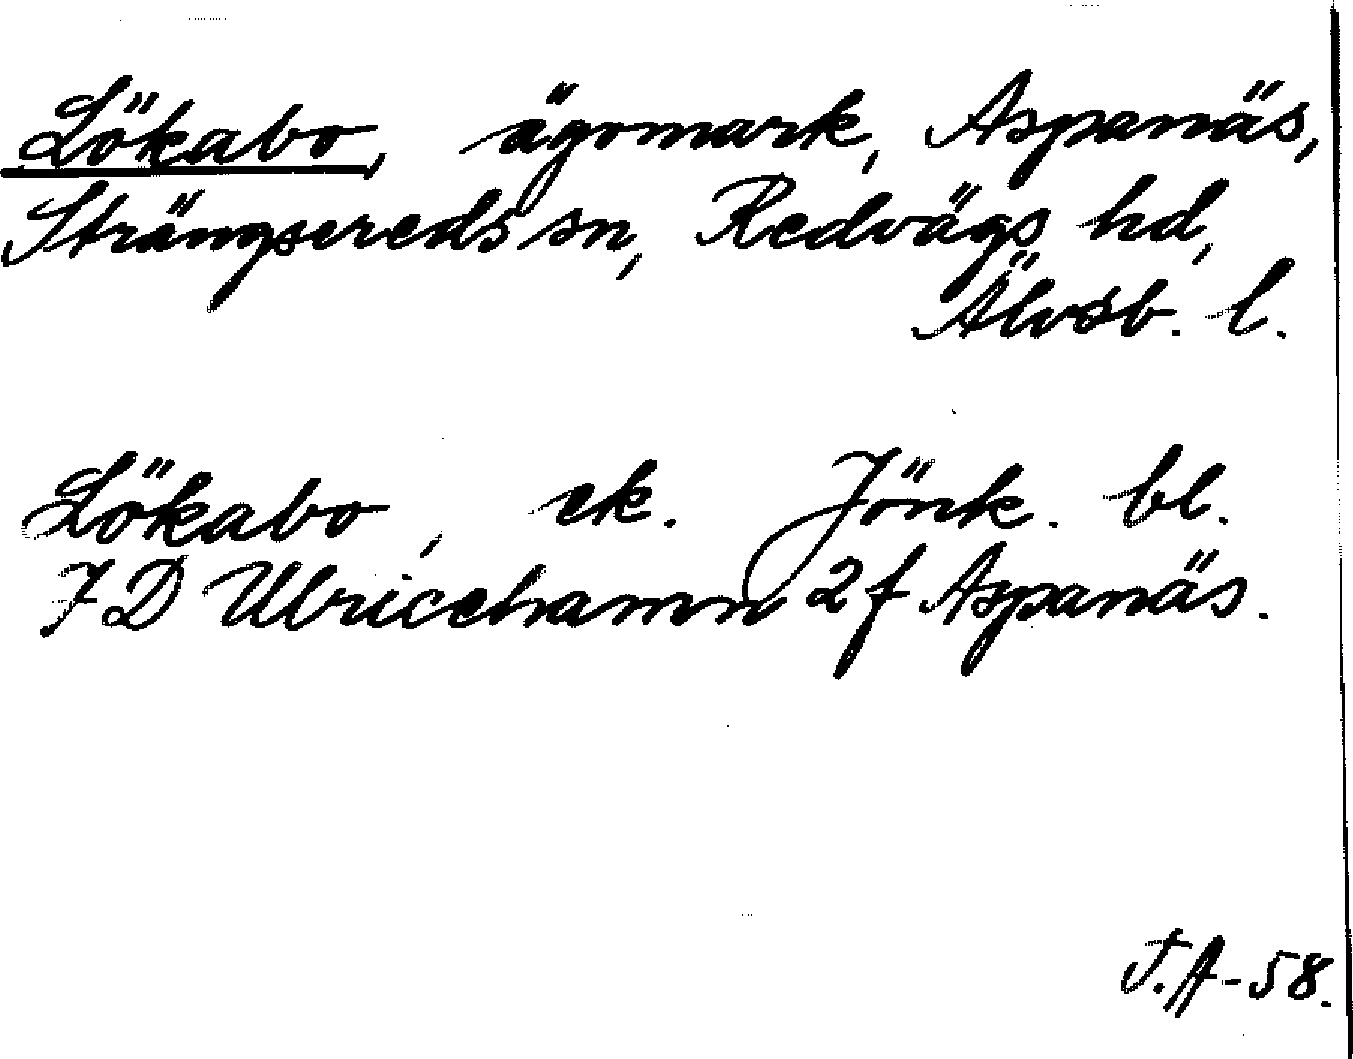 Lökabo, ägomark, Aspanäs,
Strängsereds sn, Redvägs hd,
Älvsb. l.
Lökabo, ek. Jönk. bl.
7 D Ulricehamn 2 f Aspanäs.
J.A-58.